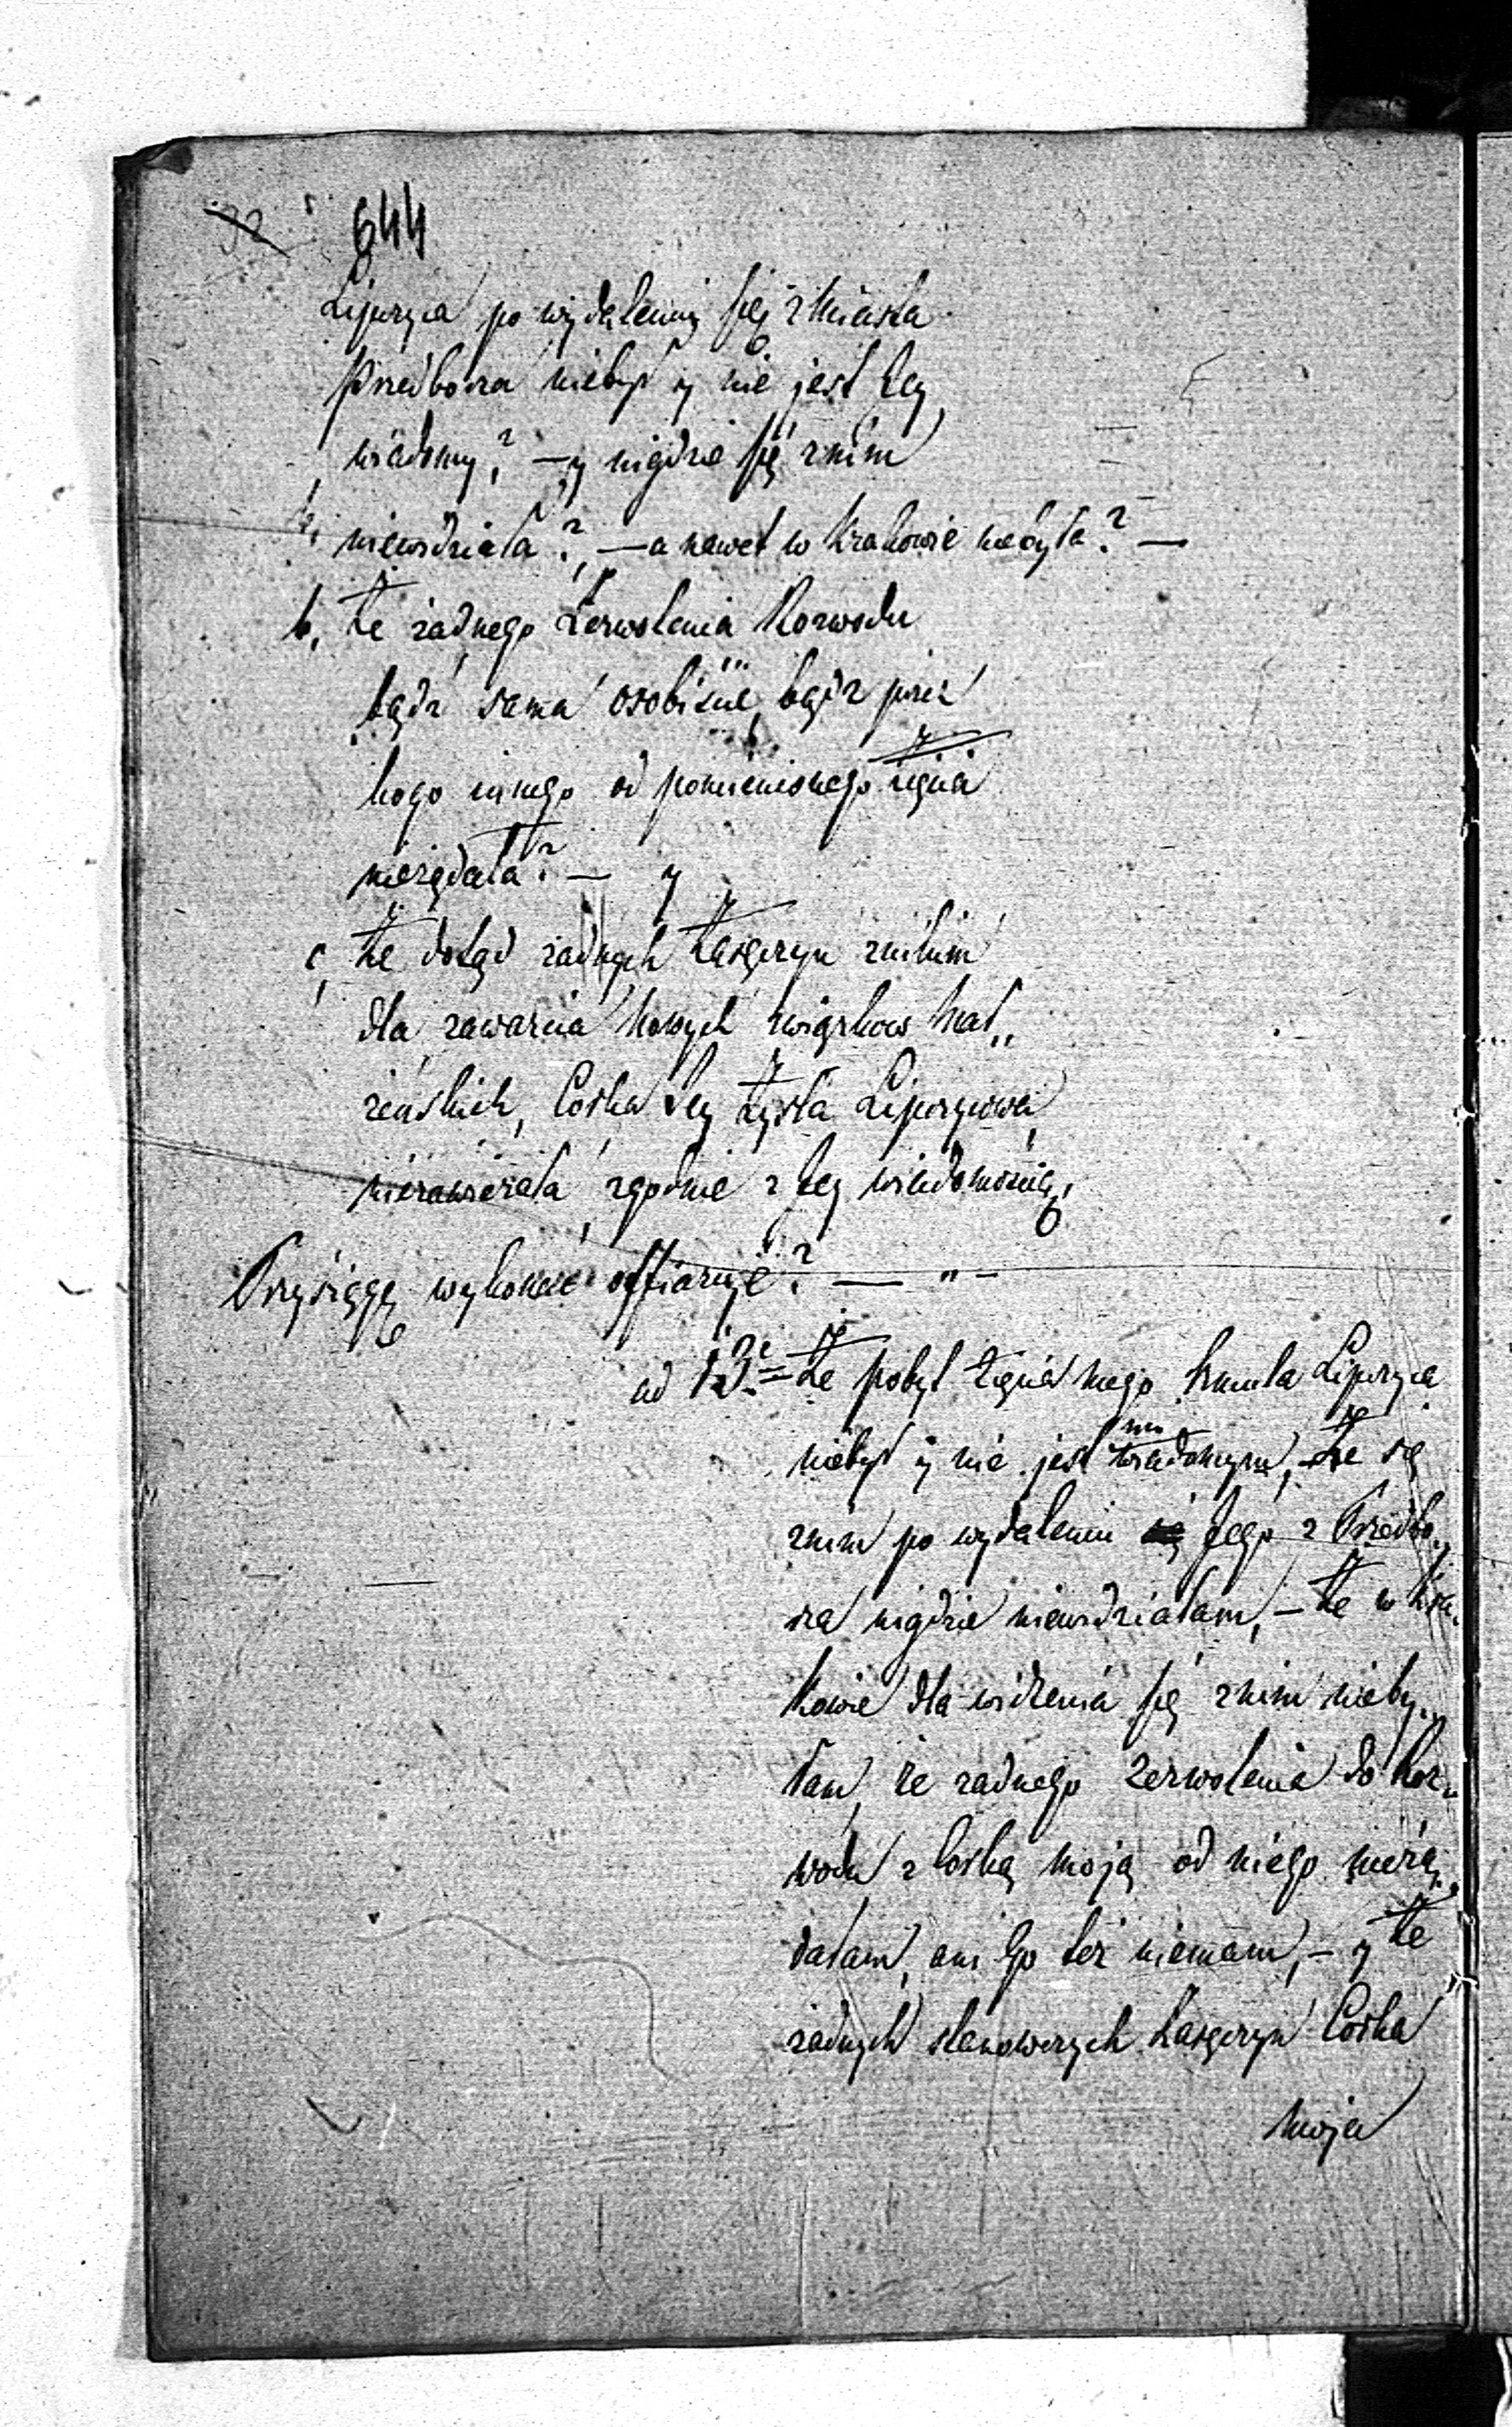 32 644
Lipszyca po wydaleniu się z Miasta
Przedborza niebył y nie jest Jey
wiadomy? — y nigdzie się znim
niewidziała? — a nawet w Krakowie niebyła? —
b, Że żadnego Zezwolenia Rozwodu
bądź sama osobiście, bądź przez
kogo innego od pomienionego Zięcia
nieżądała? — y
c, Że dotąd żadnych Zaręczyn znikim
dla zawarcia nowych związkow Mał„
żeńskich, Corka Jey Lipszycowa
niezawierała, zgodnie z Jey wiadomością,
Przysięgę wykonać offiaruje? — „ –
ad 13. = Że pobyt Zięcia mego Lipszyca
niebył y nie jest mi wiadomym, – Że się
znim po wydaleniu się Jego z Przedbo„
rza nigdzie niewidziałam, – Że w Kra„
kowie dla widzenia się znim nieby„
łam, że żadnego Zezwolenia do Roz„
wodu z Corką moją od niego nieżą„
dałam, ani Go też niemam, – y Że
żadnych stanowczych Zaręczyn Corka
moja